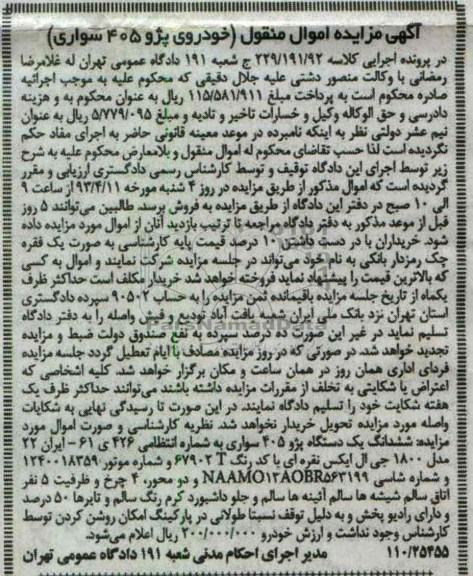 آگهی مزایده اموال منقول (خودروی پژو ۴۰۵ سواری)
در پرونده اجرایی کلاسه ۲۲۹/۱۹۱/۹۲ ج شعبه ۱۹۱ دادگاه عمومی تهران له غلامرضا
رمضانی با وکالت منصور دشتی علیه جلال دقیقی که محکوم علیه به موجب اجرائیه
صادره محکوم است به پرداخت مبلغ ۱۱۵/۵۸۱/۹۱۱ ریال به عنوان محکوم به و هزینه
دادرسی و حق الوکاله وکیل و خسارات تاخیر و تادیه و مبلغ ۵/۷۷۹/۰۹۵ ریال به عنوان
نیم عشر دولتی نظر به اینکه نامبرده در موعد معینه قانونی حاضر به اجرای مفاد حکم
نگردیده است لذا حسب تقاضای محکوم له اموال منقول و بلامعارض محکوم علیه به شرح
زیر توسط اجرای این دادگاه توقیف و توسط کارشناس رسمی دادگستری ارزیابی و مقرر
گردیده است که اموال مذکور از طریق مزایده در روز ۴ شنبه مورخه ۹۳/۴/۱۱ از ساعت ۹
الی ۱۰ صبح در دفتر این دادگاه از طریق مزایده به فروش برسد. طالبین می‌توانند ۵ روز
قبل از موعد مذکور به دفتر دادگاه مراجعه تا ترتیب بازدید آنان از اموال مورد مزایده داده
شود. خریداران با در دست داشتن ۱۰ درصد قیمت پایه کارشناسی به صورت یک فقره
چک رمزدار بانکی به نام خود می‌تواند در جلسه مزایده شرکت نمایند و اموال به کسی
که بالاترین قیمت را پیشنهاد نماید فروخته خواهد شد خریدار مکلف است حداکثر ظرف
یکماه از تاریخ جلسه مزایده باقیمانده ثمن مزایده را به حساب ۹۰۵۰۲ سپرده دادگستری
استان تهران نزد بانک ملی ایران شعبه یافت آباد تودیع و فیش واصله را به دفتر دادگاه
تسلیم نماید در غیر این صورت ده درصد سپرده به نفع صندوق دولت ضبط و مزایده
تجدید خواهد شد. در صورتی که در روز مزایده مصادف با ایام تعطیل گردد جلسه مزایده
فردای اداری همان روز در همان ساعت و مکان برگزار خواهد شد. کلیه اشخاصی که
اعتراض یا شکایتی به تخلف از مقررات مزایده داشته باشند می‌توانند حداکثر ظرف یک
هفته شکایت خود را تسلیم دادگاه نمایند. در این صورت تا رسیدگی نهایی به شکایات
واصله مورد مزایده تحویل خریدار نخواهد شد. نظریه کارشناسی و صورت اموال مورد
مزایده: ششدانگ یک دستگاه پژو ۴۰۵ سواری به شماره انتظامی ۴۲۶ ی ۶۱ - ایران ۲۲
مدل ۱۸۰۰ جی ال ایکس نقره ای با کد رنگ T ۶۷۹۰۲ و شماره موتور ۱۲۴۰۰۱۸۳۵۹
و شماره شاسی NAAMO۱۳AOBR۵۶۳۱۹۹ و دو محور، ۴ چرخ و ظرفیت ۵ نفر
اتاق سالم شیشه ها سالم آئینه ها سالم و جلو داشبورد کرم رنگ سالم و تایرها ۵۰ درصد
و دارای رادیو پخش و به دلیل توقف نسبتا طولانی در پارکینگ امکان روشن کردن توسط
کارشناس وجود نداشت و ارزش خودرو ۲۰۰/۰۰۰/۰۰۰ ریال اعلام می‌شود.
۱۱۰/۲۵۴۵۵ مدیر اجرای احکام مدنی شعبه ۱۹۱ دادگاه عمومی تهران
ParsNamadData